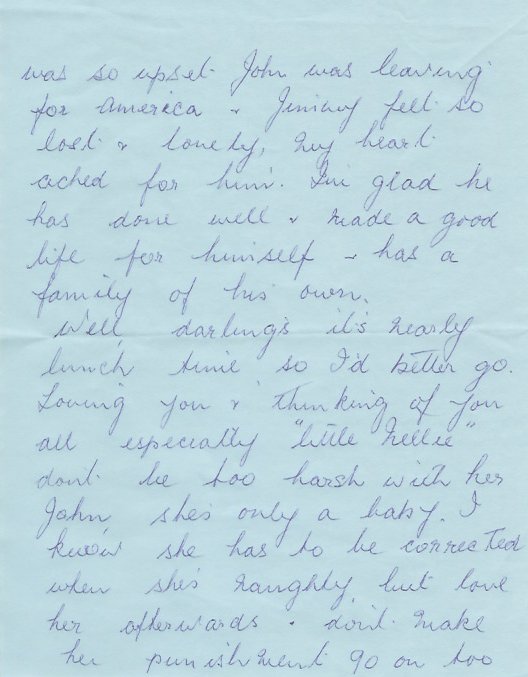 was so upset. John was leaving
for America & Jimmy felt so
lost & lonely, my heart
ached for him. I'm glad he
has done well & made a good
life for himself & has a
family of his own.
Well, darlings it's nearly
lunch time so I'd better go.
Loving you & thinking of you
all especially "little Nellie"
dont be too harsh with her
John, she's only a baby. I
know she has to be corrected
when she's naughty, but love
her afterwards. don't make
her punishment go on too